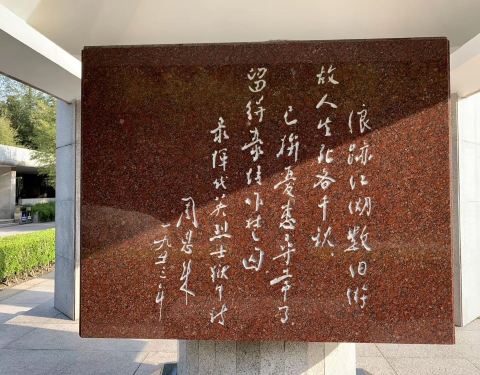 浪跡江湖數旧游
故人生死各千秋、
已拚憂患尋常事
留得豪情作楚囚
录恽代英烈士獄中詩
周恩来
一九五三年